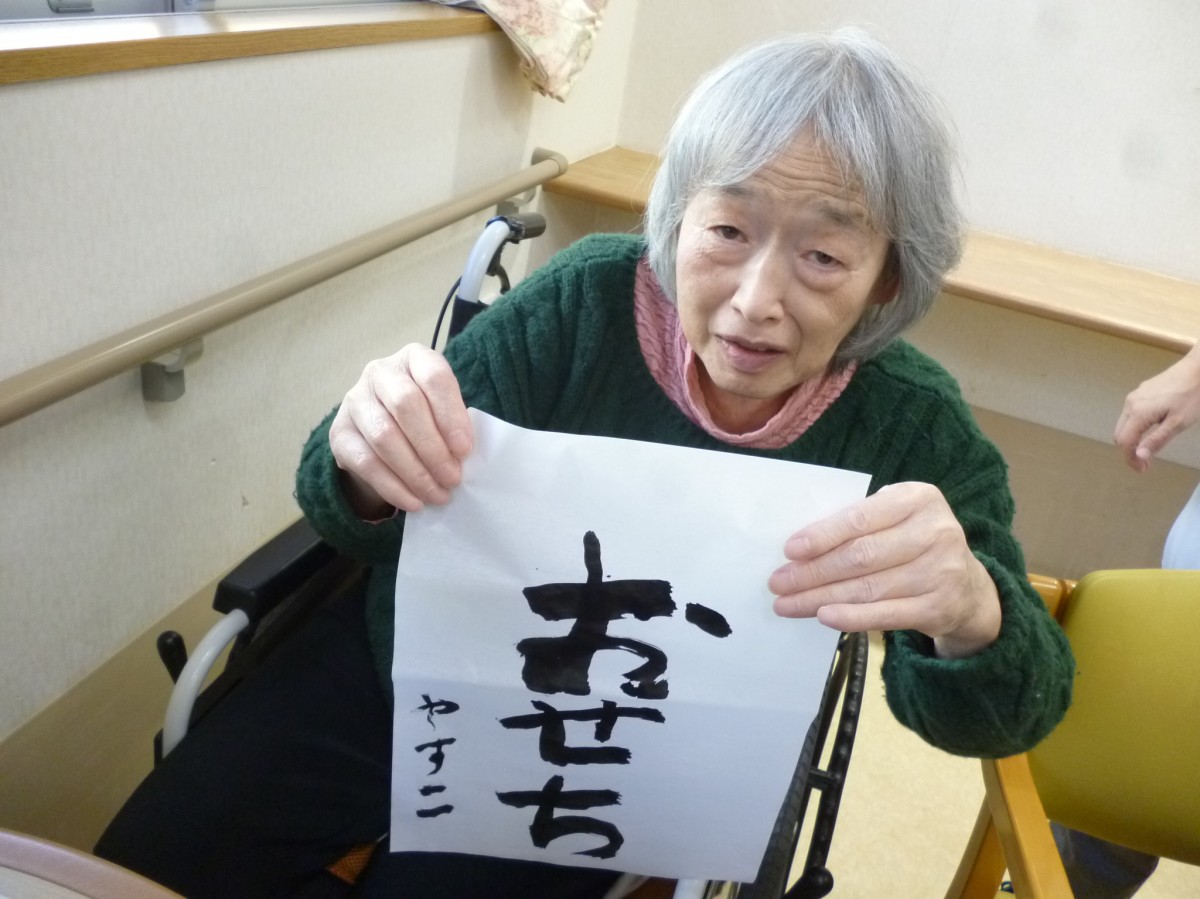 おせち
やすこ